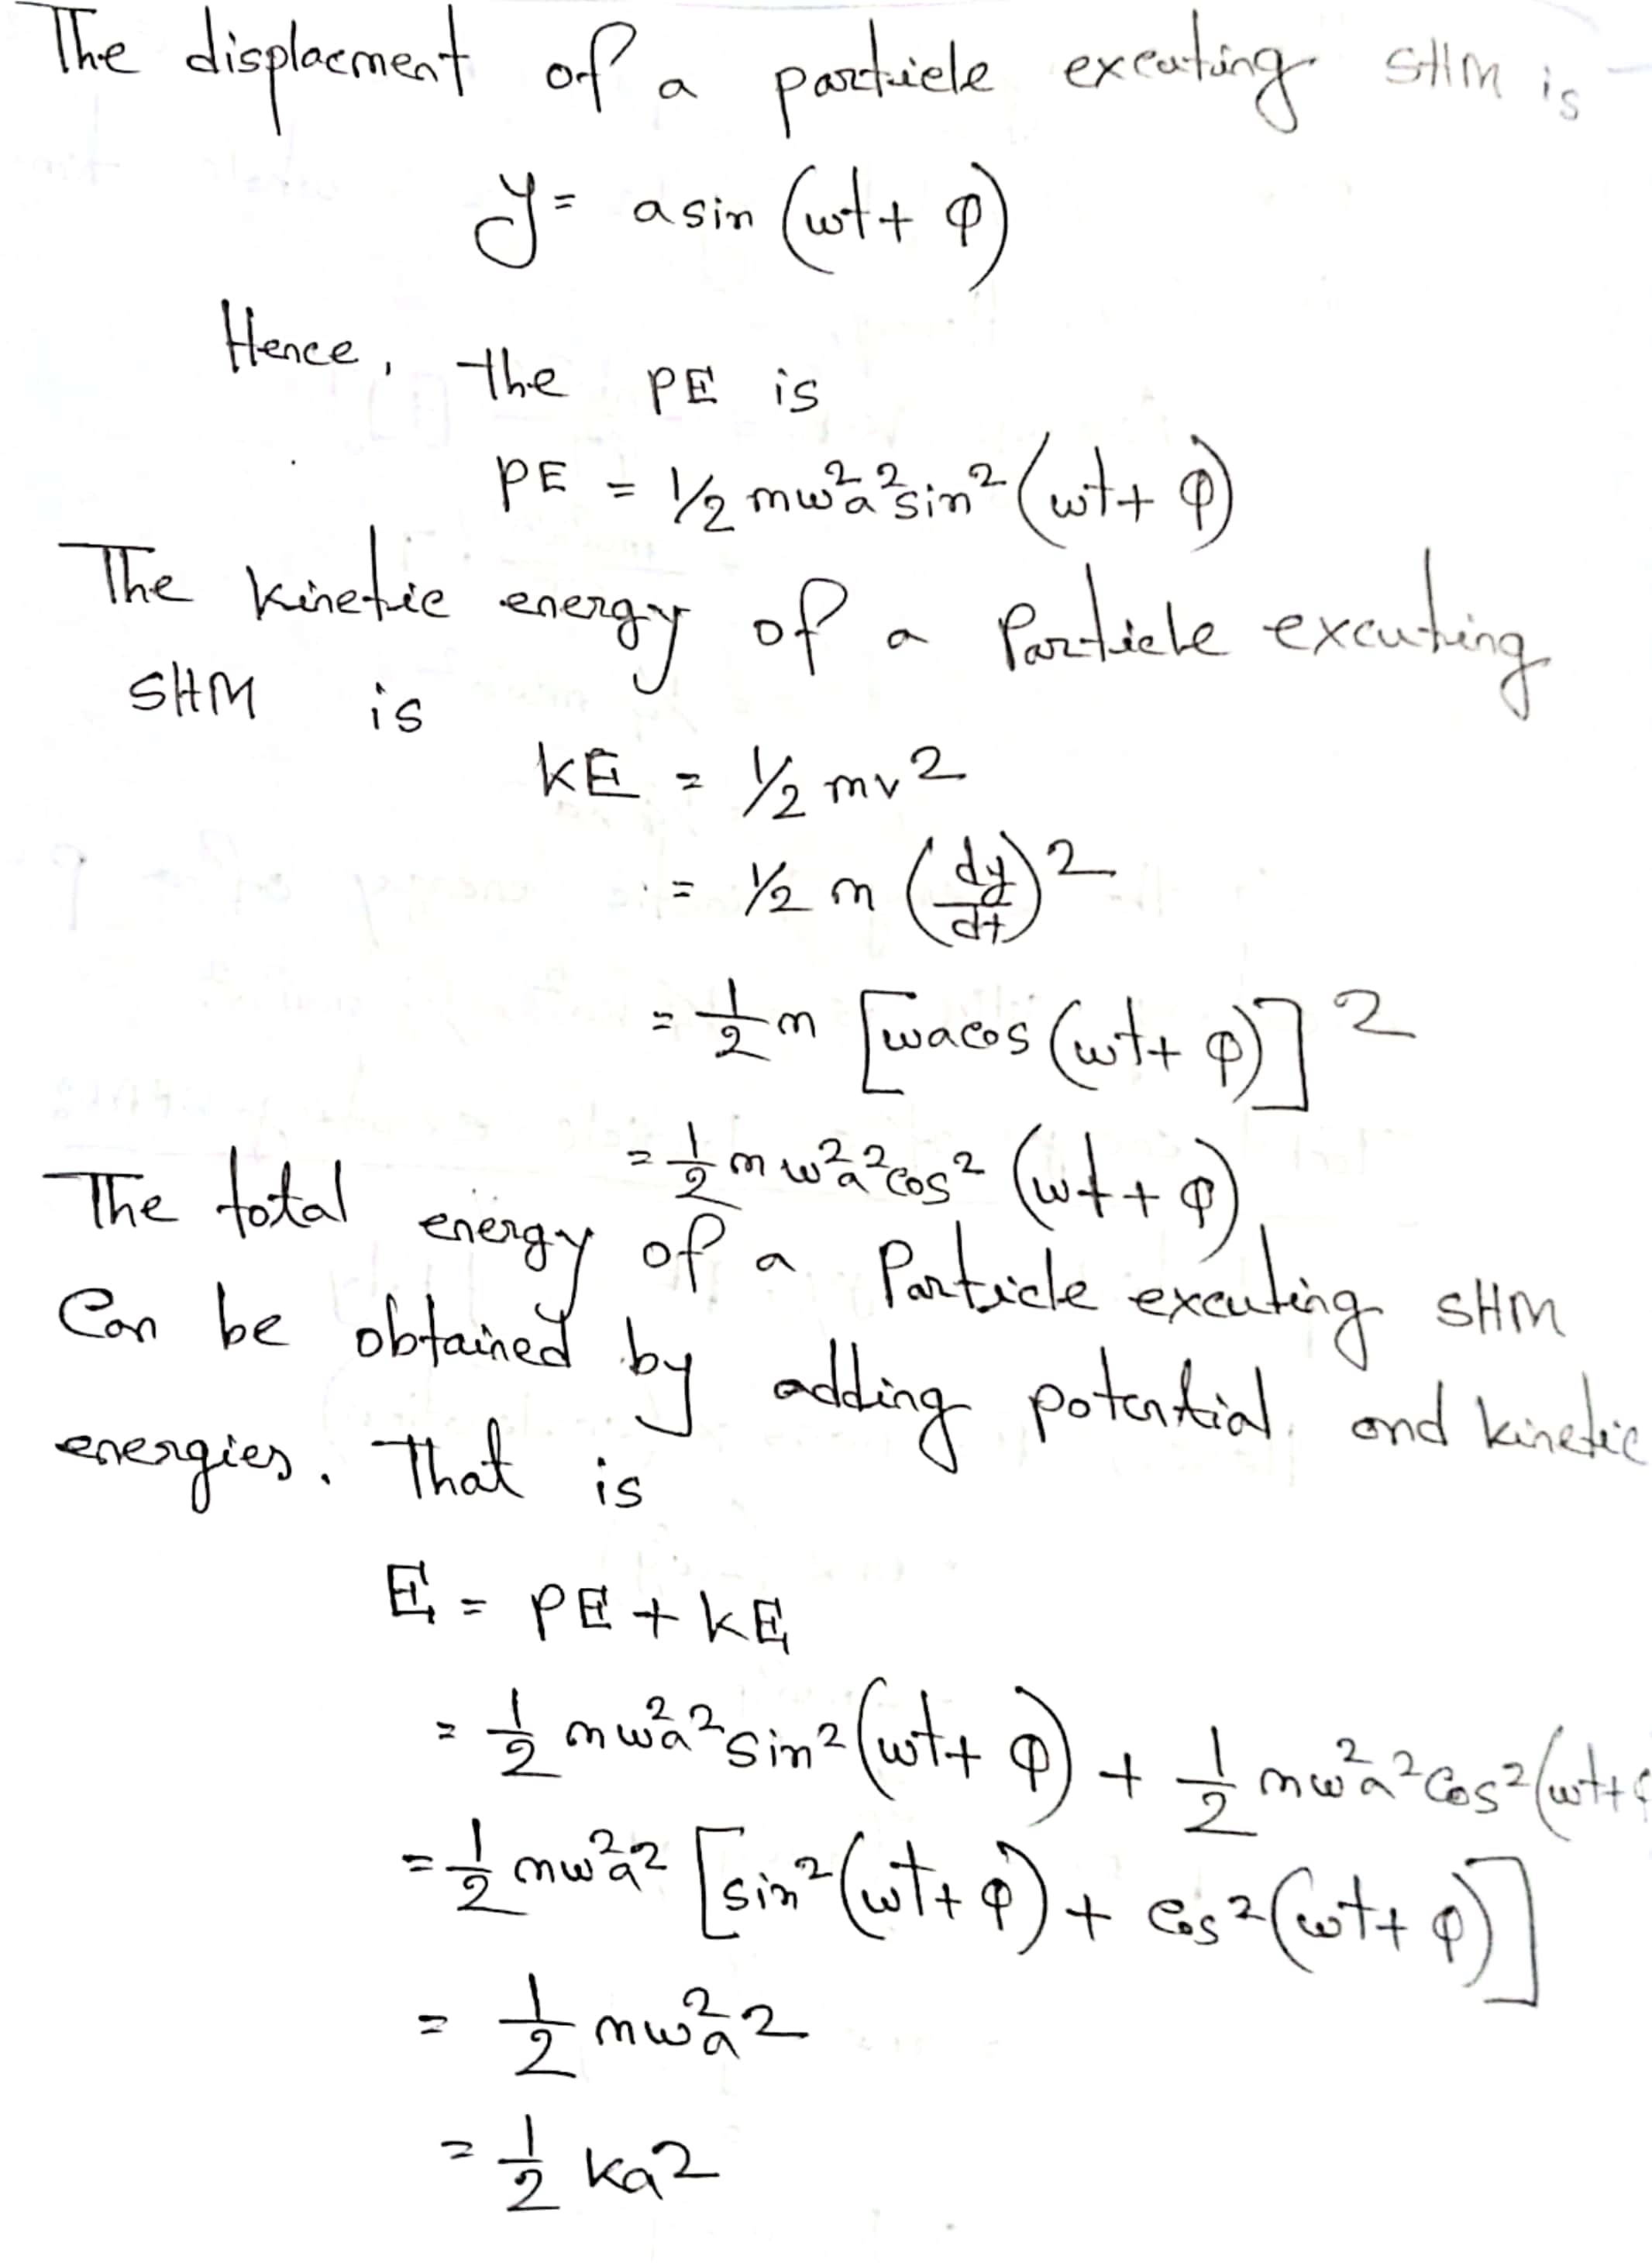 The displacment of a particle excuting SHM is
y = a sin (ωt + φ)
Hence, the PE is
PE = 1/2 mω²a² sin² (ωt + φ)
The kinetic energy of a Particle excuting
SHM is
KE = 1/2 mv²
= 1/2 m (dy/dt)²
= 1/2 m [ωa cos (ωt + φ)]²
= 1/2 mω²a² cos² (ωt + φ)
The total energy of a Particle excuting SHM
Can be obtained by adding potential and kinetic
energies. That is
E = PE + KE
= 1/2 mω²a² sin² (ωt + φ) + 1/2 mω²a² cos² (ωt +
= 1/2 mω²a² [sin² (ωt + φ) + cos² (ωt + φ)]
= 1/2 mω²a²
= 1/2 ka²